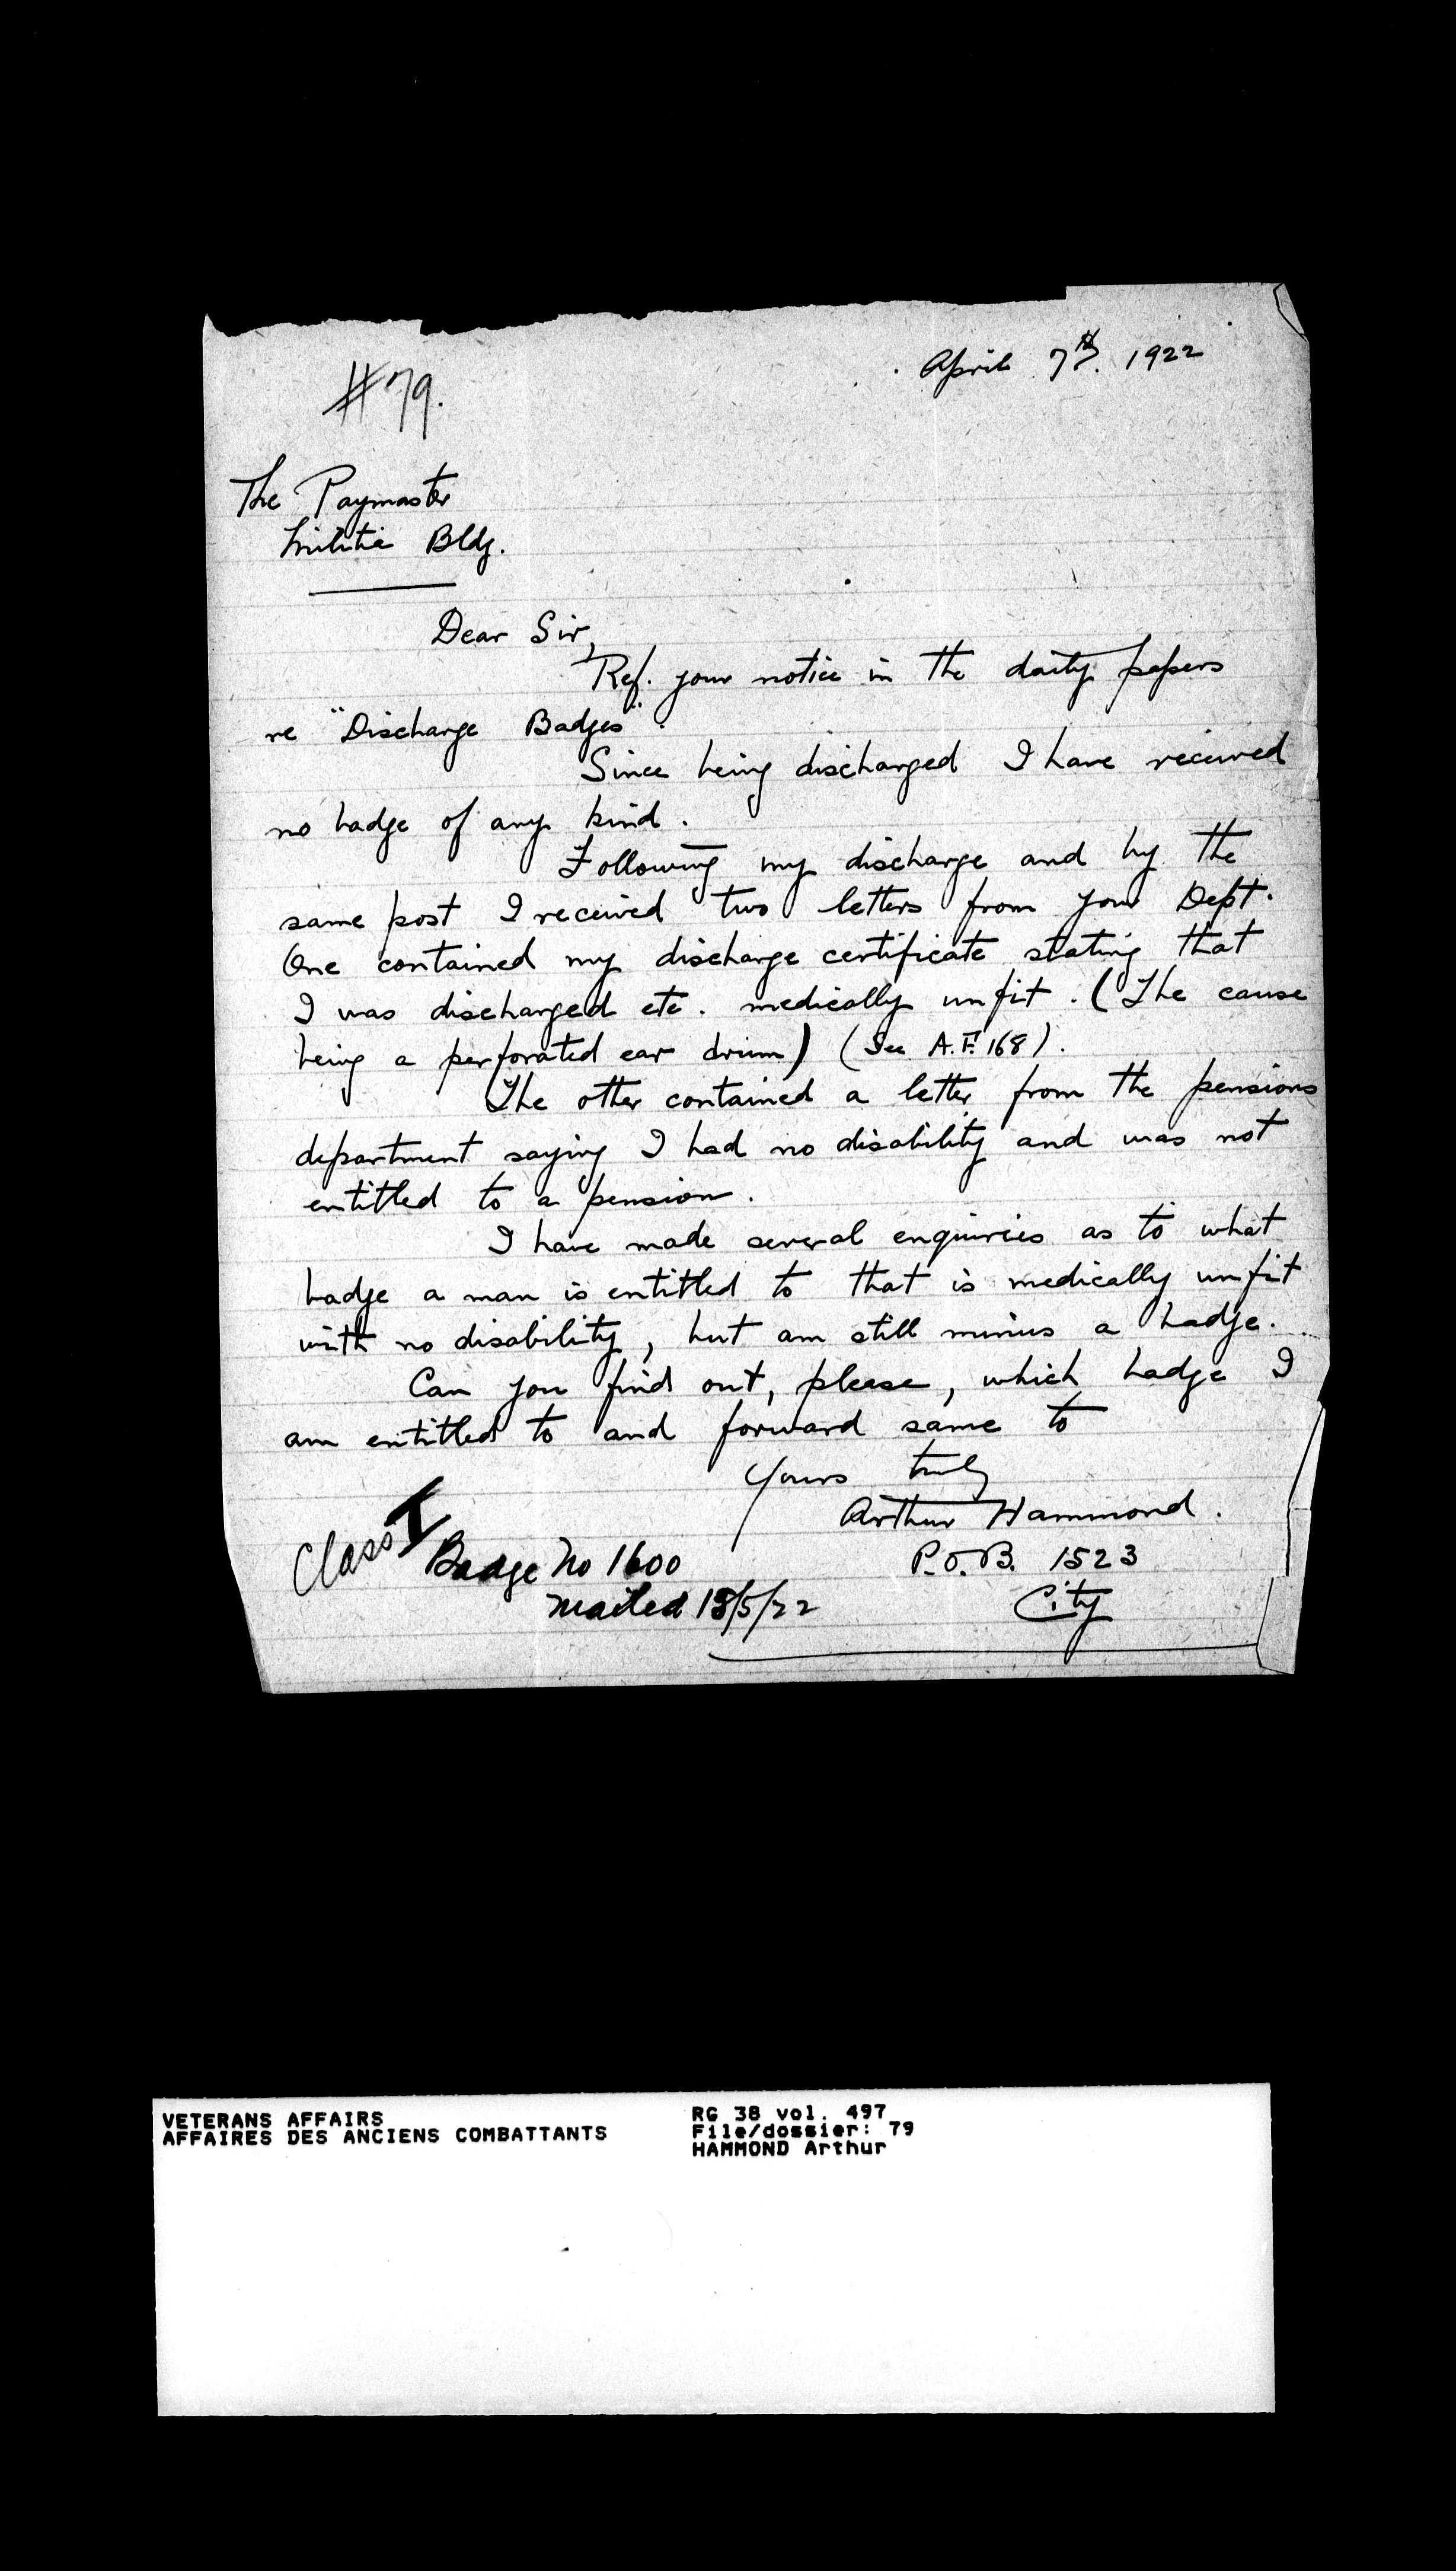 April 7th. 1922
#79.
The Paymaster
Militia Bldg.
Dear Sir,
Ref. your notice in the daily papers
re "Discharge Badges".
Since being discharged I have received
no badge of any kind.
Following my discharge and by the
same post I received two letters from your Dept.
One contained my discharge certificate stating that
I was discharged etc. medically unfit. (The cause
being a perforated ear drum) (See A.F. 168).
The other contained a letter from the pensions
department saying I had no disability and was not
entitled to a pension.
I have made several enquiries as to what
badge a man is entitled to that is medically unfit
with no disability, but am still minus a badge.
Can you find out, please, which badge I
am entitled to and forward same to
Yours truly
Arthur Hammond.
P.O.B. 1523
City
Class I
Badge No 1600
Mailed 18/5/22
VETERANS AFFAIRS
AFFAIRES DES ANCIENS COMBATTANTS
RG 38 vol. 497
File/dossier: 79
HAMMOND Arthur